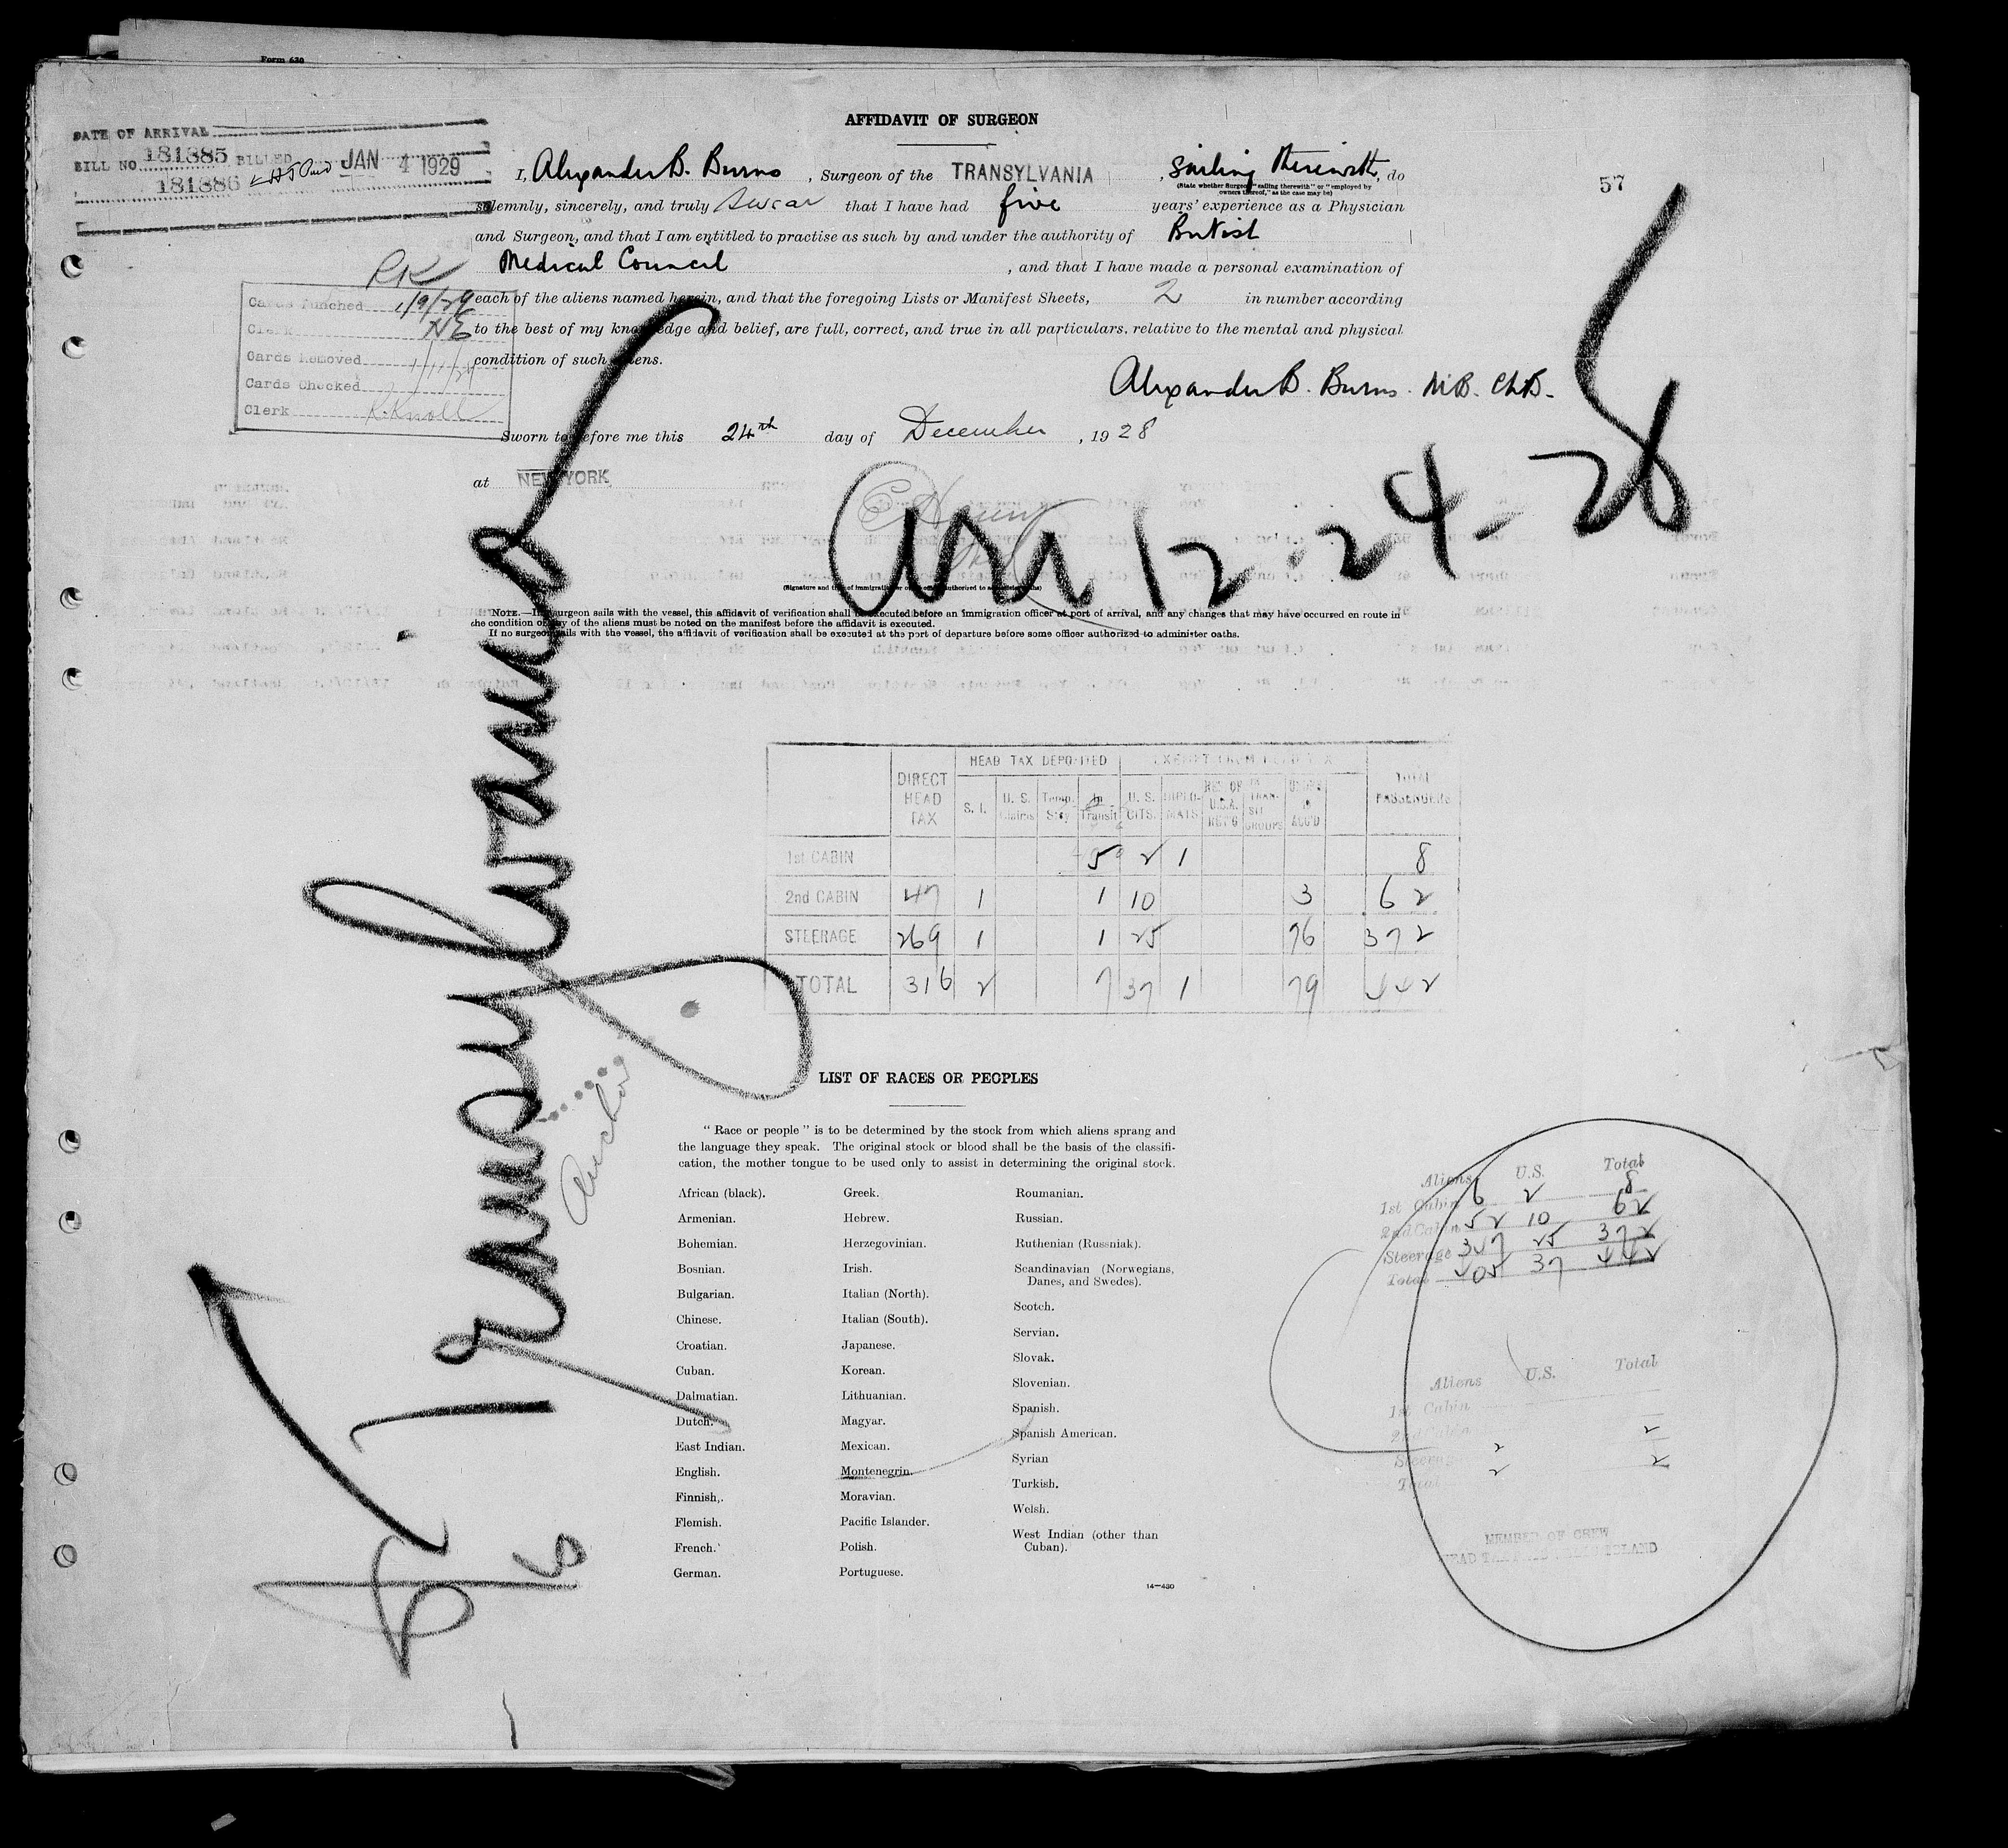 Form 630
DATE OF ARRIVAL
BILL NO. 181885 BILLED JAN 4 1929
181886
57
AFFIDAVIT OF SURGEON
I, Alexander B. Burns, Surgeon of the TRANSYLVANIA, Sailing therewith, do
(State whether Surgeon "sailing therewith" or "employed by
owners thereof," as the case may be)
solemnly, sincerely, and truly Swear that I have had five years' experience as a Physician
and Surgeon, and that I am entitled to practise as such by and under the authority of British
Medical Council, and that I have made a personal examination of
each of the aliens named herein, and that the foregoing Lists or Manifest Sheets, 2 in number according
to the best of my knowledge and belief, are full, correct, and true in all particulars. relative to the mental and physical
condition of such aliens.
Alexander B. Burns. M.B. Ch.B.
RK
Cards Punched 1/9/29
Clerk NE
Cards Removed 1/11/29
Cards Checked
Clerk R. Knoll
Sworn to before me this 24th day of December, 1928
at NEW YORK
Arr 12-24-28
(Signature and title of immigration or other officer authorized to administer oaths)
NOTE.—If a surgeon sails with the vessel, this affidavit of verification shall be executed before an immigration officer at port of arrival, and any changes that may have occurred en route in
the condition of any of the aliens must be noted on the manifest before the affidavit is executed.
If no surgeon sails with the vessel, the affidavit of verification shall be executed at the port of departure before some officer authorized to administer oaths.
Transylvania
Anchor
HEAD TAX DEPOSITED EXEMPT FROM HEAD TAX
DIRECT HEAD TAX S. I. U. S. Claims Temp. Stay In Transit U. S. CITS. DIPLO-MATS. RES. OF U.S.A. RET'G IN TRAN-SIT GROUPS UNDER 16 ACC'D TOTAL PASSENGERS
1st CABIN 5 2 1 8
2nd CABIN 47 1 1 10 3 62
STEERAGE 269 1 1 25 76 372
TOTAL 316 2 7 37 1 79 442
LIST OF RACES OR PEOPLES
"Race or people" is to be determined by the stock from which aliens sprang and
the language they speak. The original stock or blood shall be the basis of the classifi-
cation, the mother tongue to be used only to assist in determining the original stock.
African (black).
Armenian.
Bohemian.
Bosnian.
Bulgarian.
Chinese.
Croatian.
Cuban.
Dalmatian.
Dutch.
East Indian.
English.
Finnish.
Flemish.
French.
German.
Greek.
Hebrew.
Herzegovinian.
Irish.
Italian (North).
Italian (South).
Japanese.
Korean.
Lithuanian.
Magyar.
Mexican.
Montenegrin.
Moravian.
Pacific Islander.
Polish.
Portuguese.
Roumanian.
Russian.
Ruthenian (Russniak).
Scandinavian (Norwegians,
Danes, and Swedes).
Scotch.
Servian.
Slovak.
Slovenian.
Spanish.
Spanish American.
Syrian
Turkish.
Welsh.
West Indian (other than
Cuban).
14—430
Aliens U.S. Total
1st Cabin 6 2 8
2nd Cabin 52 10 62
Steerage 347 25 372
Total 405 37 442
Aliens U.S. Total
1st Cabin
2nd Cabin
Steerage 2 2
Total 2 2
MEMBER OF CREW